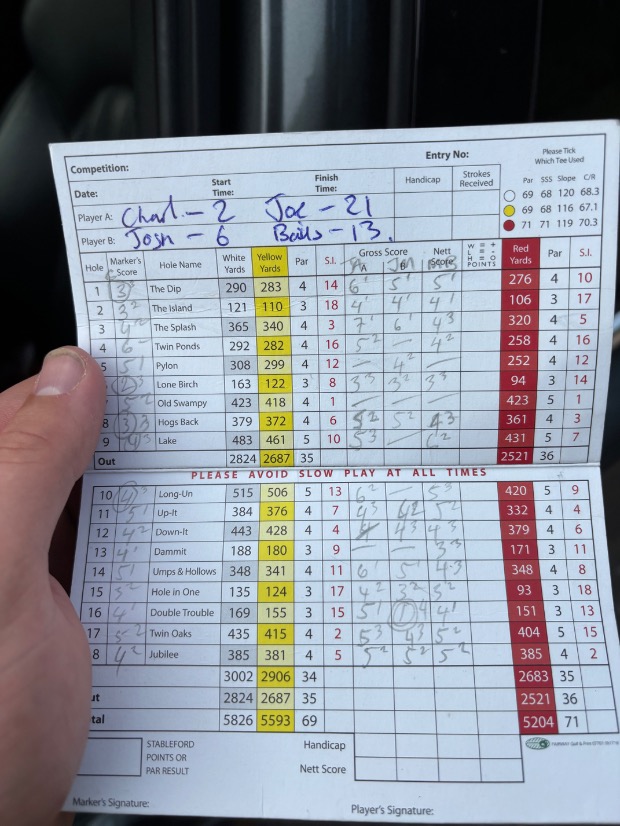 Competition: Entry No:
Please Tick
Which Tee Used
Date: Start Time: Finish Time: Handicap Strokes Received
Par SSS Slope C/R
69 68 120 68.3
69 68 116 67.1
71 71 119 70.3
Player A: Charl - 2 Joe - 21
Player B: Josh - 6 Bails - 13.
Hole Marker's Score Hole Name White Yards Yellow Yards Par S.I. Gross Score A B Nett Score W = + L = - H = O POINTS Red Yards Par S.I.
1 The Dip 290 283 4 14 6' 5' 5' 276 4 10
2 The Island 121 110 3 18 4' 4' 4' 106 3 17
3 4² The Splash 365 340 4 3 7' 6' 4³ 320 4 5
4 6- Twin Ponds 292 282 4 16 5² - 4² 258 4 16
5 5' Pylon 308 299 4 12 - 4² - 252 4 12
Lone Birch 163 122 3 8 3³ 3² 3³ 94 3 14
5² Old Swampy 423 418 4 1 - - - 423 5 1
8 3³ Hogs Back 379 372 4 6 5² 5² 4³ 361 4 3
9 4³ Lake 483 461 5 10 5³ - 6² 431 5 7
Out 2824 2687 35 2521 36
PLEASE AVOID SLOW PLAY AT ALL TIMES
10 4³ Long-Un 515 506 5 13 6² - 5³ 420 5 9
11 5' Up-It 384 376 4 7 4³ 5² 332 4 4
12 4² Down-It 443 428 4 4 4³ 4³ 379 4 6
13 4' Dammit 188 180 3 9 - - 3³ 171 3 11
14 5' Umps & Hollows 348 341 4 11 6' 5' 4³ 348 4 8
15 3² Hole in One 135 124 3 17 4² 3² 5² 93 3 18
16 4' Double Trouble 169 155 3 15 5' 1⁴ 4' 151 3 13
17 5² Twin Oaks 435 415 4 2 5³ 4³ 5² 404 5 15
8 4² Jubilee 385 381 4 5 5² 5² 5² 385 4 2
3002 2906 34 2683 35
ut 2824 2687 35 2521 36
tal 5826 5593 69 5204 71
STABLEFORD
POINTS OR
PAR RESULT
Handicap
Nett Score
Marker's Signature: Player's Signature: